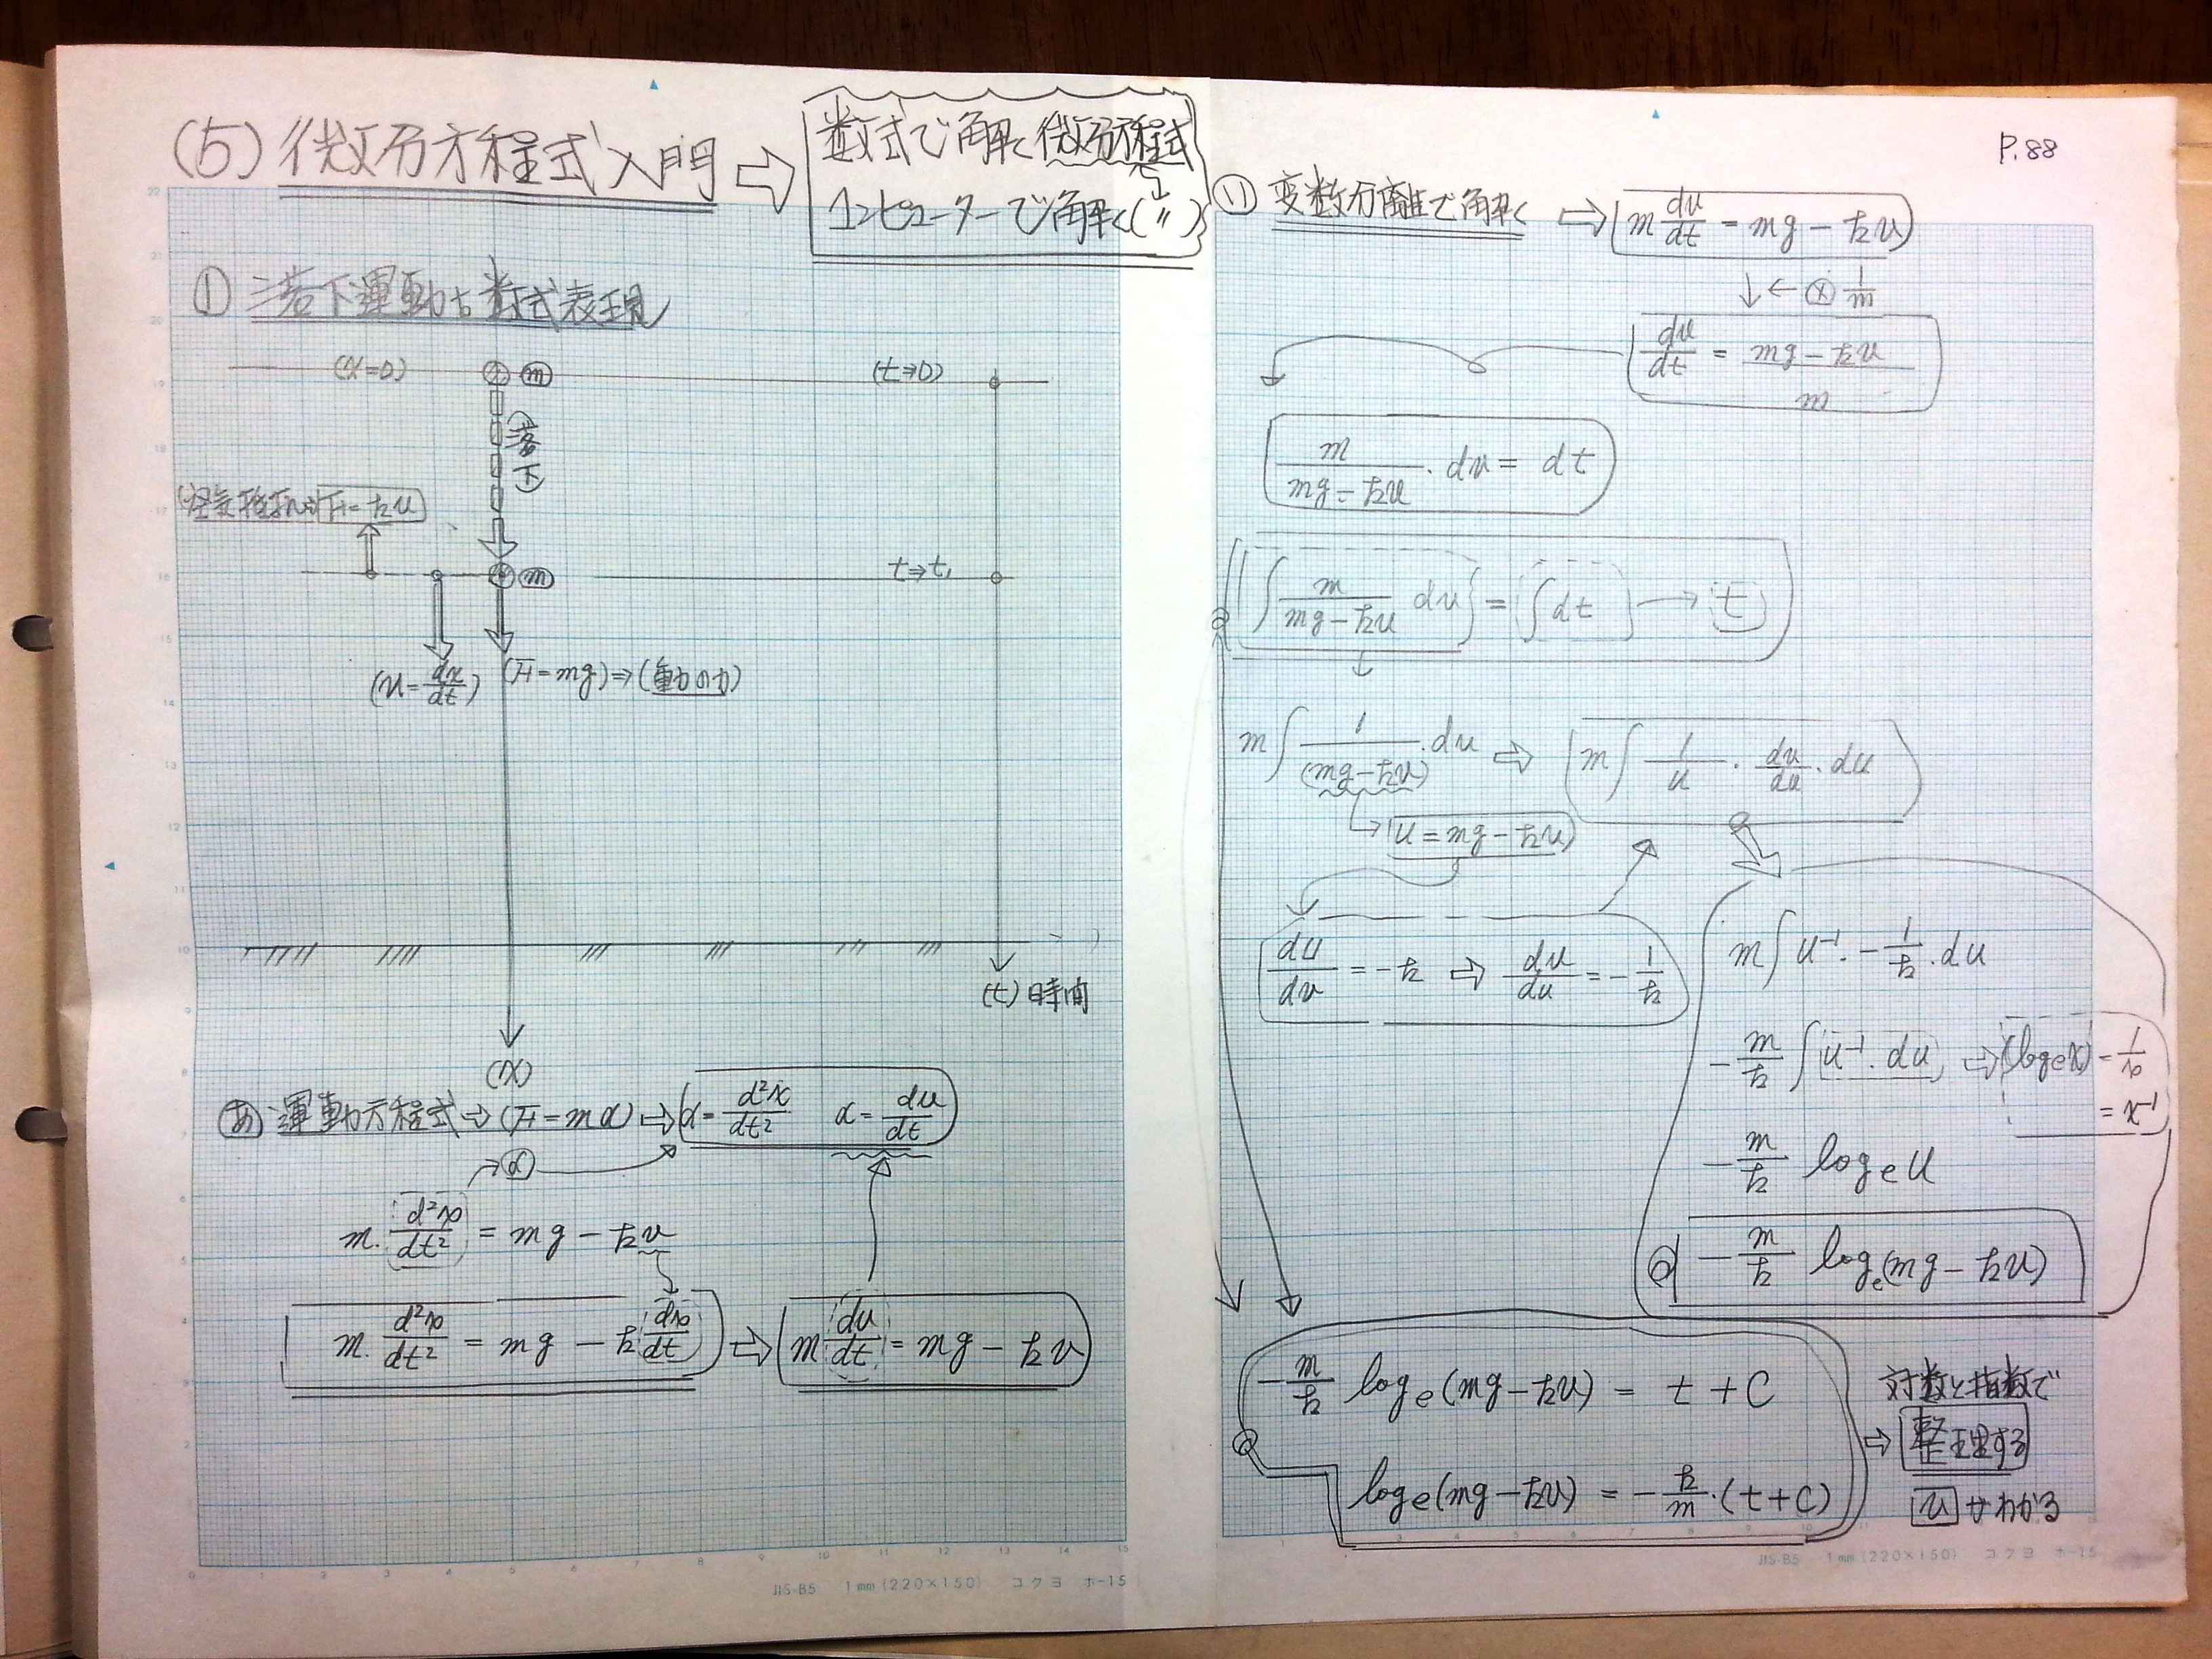 (5) 微分方程式入門 ⇨ 数式で解く微分方程式
コンピューターで解く(〃)
① 落下運動を数式表現
(x=0) m (t⇒0)
(落下)
(空気抵抗)⇒F=kv
m t⇒t₁
(v=dx/dt) (F=mg)⇒(重力の力)
(t) 時間
(x)
あ 運動方程式⇒(F=mα)⇒ α=d²x/dt² α=dv/dt
→α
m・d²x/dt² = mg − kv
m・d²x/dt² = mg − k dx/dt ⇨ m dv/dt = mg − kv
P.88
い 変数分離で解く ⇨ m dv/dt = mg − kv
↓ ← ⊗ 1/m
dv/dt = (mg − kv)/m
m/(mg − kv)・dv = dt
∫ m/(mg − kv) dv = ∫dt → t
m∫ 1/(mg − kv)・dv ⇨ m∫ 1/u・dv/du・du
u = mg − kv
du/dv = −k ⇨ dv/du = −1/k
m∫u⁻¹・−1/k・du
−m/k ∫u⁻¹・du ⇨ (logex) = 1/x
= x⁻¹
−m/k loge u
−m/k loge(mg − kv)
−m/k loge(mg − kv) = t + C
loge(mg − kv) = −k/m・(t + C)
対数と指数で
⇨ 整理する
v がわかる
JIS-B5 1mm (220×150) コクヨ ホ-15
JIS-B5 1mm (220×150) コクヨ ホ-15